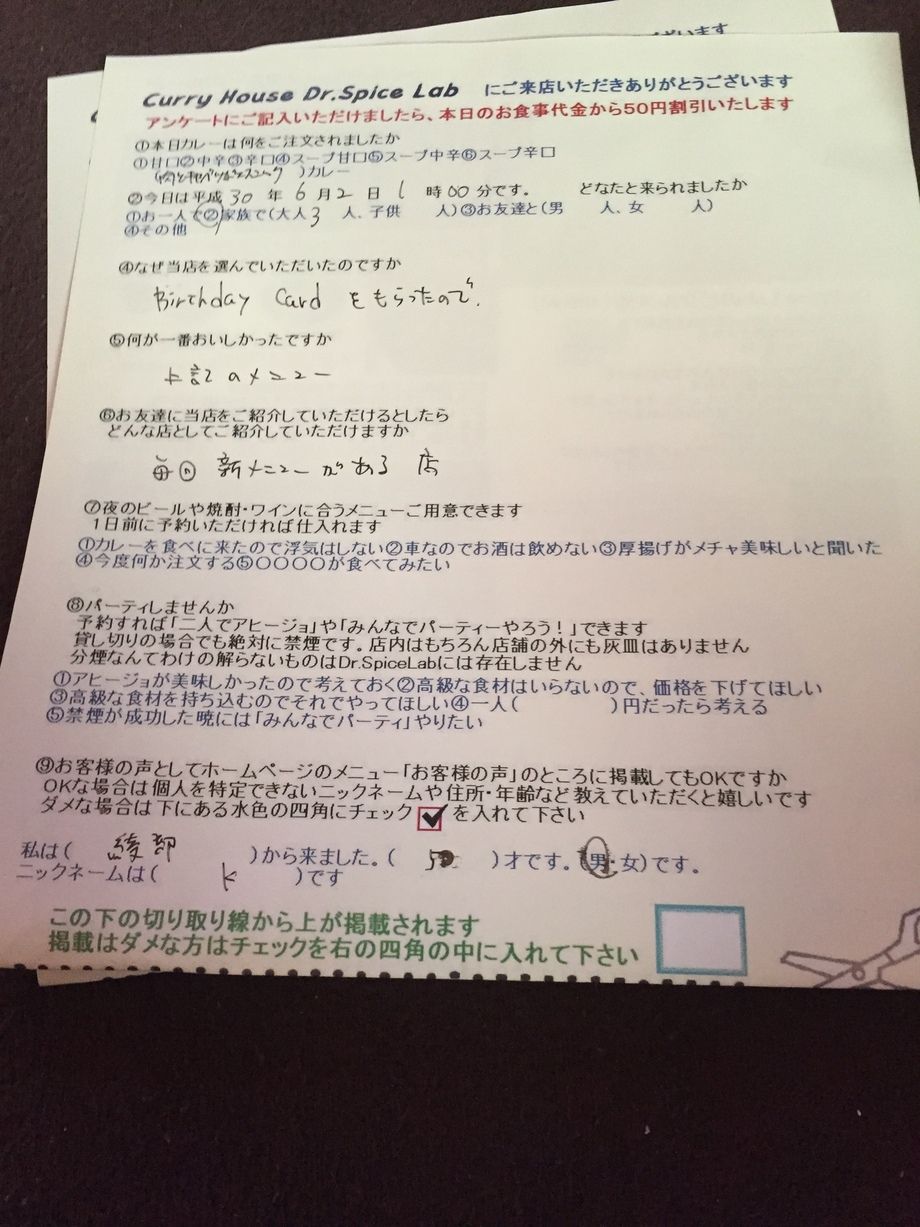 ございます
Curry House Dr.Spice Lab にご来店いただきありがとうございます
アンケートにご記入いただけましたら、本日のお食事代金から50円割引いたします
①本日カレーは何をご注文されましたか
①甘口②中辛③辛口④スープ甘口⑤スープ中辛⑥スープ辛口
( )カレー
②今日は平成 30 年 6 月 2 日 1 時 00 分です。 どなたと来られましたか
①お一人で②家族で(大人 3 人、子供 人)③お友達と(男 人、女 人)
④その他
④なぜ当店を選んでいただいたのですか
Birthday Card をもらったので.
⑤何が一番おいしかったですか
上記のメニュー
⑥お友達に当店をご紹介していただけるとしたら
どんな店としてご紹介していただけますか
毎回 新メニューがある 店
⑦夜のビールや焼酎・ワインに合うメニューご用意できます
1日前に予約いただければ仕入れます
①カレーを食べに来たので浮気はしない②車なのでお酒は飲めない③厚揚げがメチャ美味しいと聞いた
④今度何か注文する⑤〇〇〇〇が食べてみたい
⑧パーティしませんか
予約すれば「二人でアヒージョ」や「みんなでパーティーやろう！」できます
貸し切りの場合でも絶対に禁煙です。店内はもちろん店舗の外にも灰皿はありません
分煙なんてわけの解らないものはDr.SpiceLabには存在しません
①アヒージョが美味しかったので考えておく②高級な食材はいらないので、価格を下げてほしい
③高級な食材を持ち込むのでそれでやってほしい④一人( )円だったら考える
⑤禁煙が成功した暁には「みんなでパーティ」やりたい
⑨お客様の声としてホームページのメニュー「お客様の声」のところに掲載してもOKですか
OKな場合は個人を特定できないニックネームや住所・年齢など教えていただくと嬉しいです
ダメな場合は下にある水色の四角にチェック を入れて下さい
私は( 綾部 )から来ました。( 50 )才です。(男・女)です。
ニックネームは( K )です
この下の切り取り線から上が掲載されます
掲載はダメな方はチェックを右の四角の中に入れて下さい